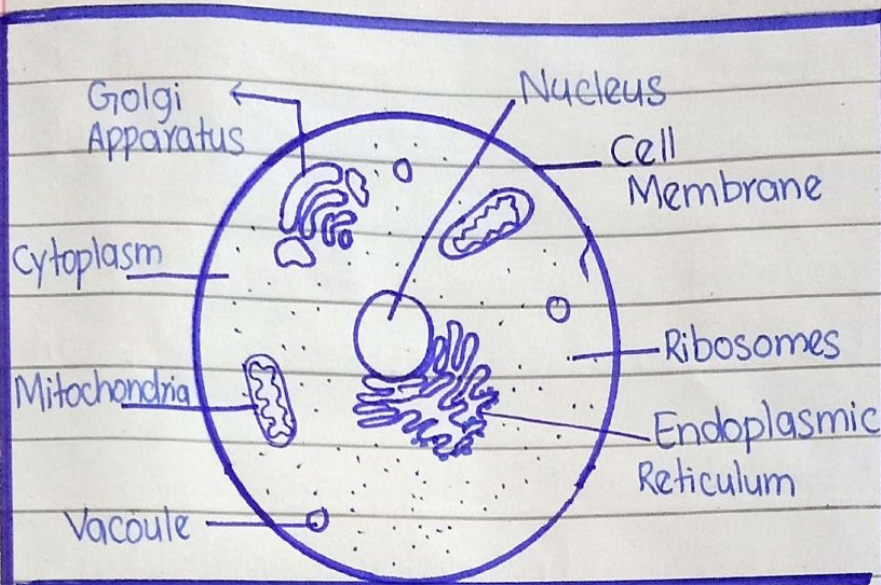 Golgi
Apparatus
Nucleus
Cell
Membrane
Cytoplasm
Ribosomes
Mitochondria
Endoplasmic
Reticulum
Vacoule